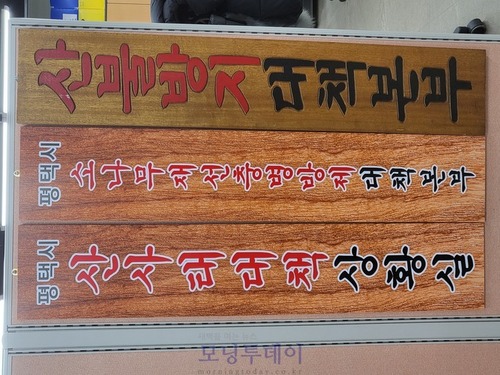 평택시
산사태대책상황실
평택시
소나무재선충병방제대책본부
산불방지대책본부